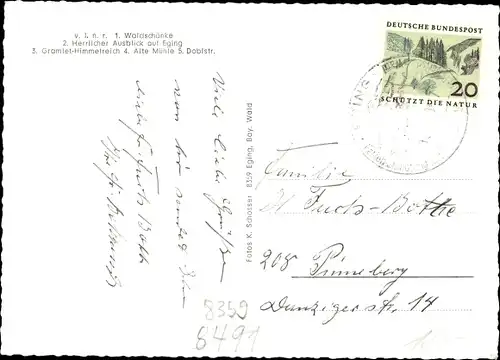 v. l. n. r. 1. Waldschänke
2. Herrlicher Ausblick auf Eging
3. Gramlet-Himmelreich 4. Alte Mühle 5. Doblstr.
Viele liebe Grüße
von hier sendet Ihnen
Fotos K. Schosser 8359 Eging, Bay. Wald
DEUTSCHE BUNDESPOST
20
SCHUTZT DIE NATUR
EGING
Familie
H. Fuchs-Bothe
208 Pinneberg
Danziger str. 14
8359
6491